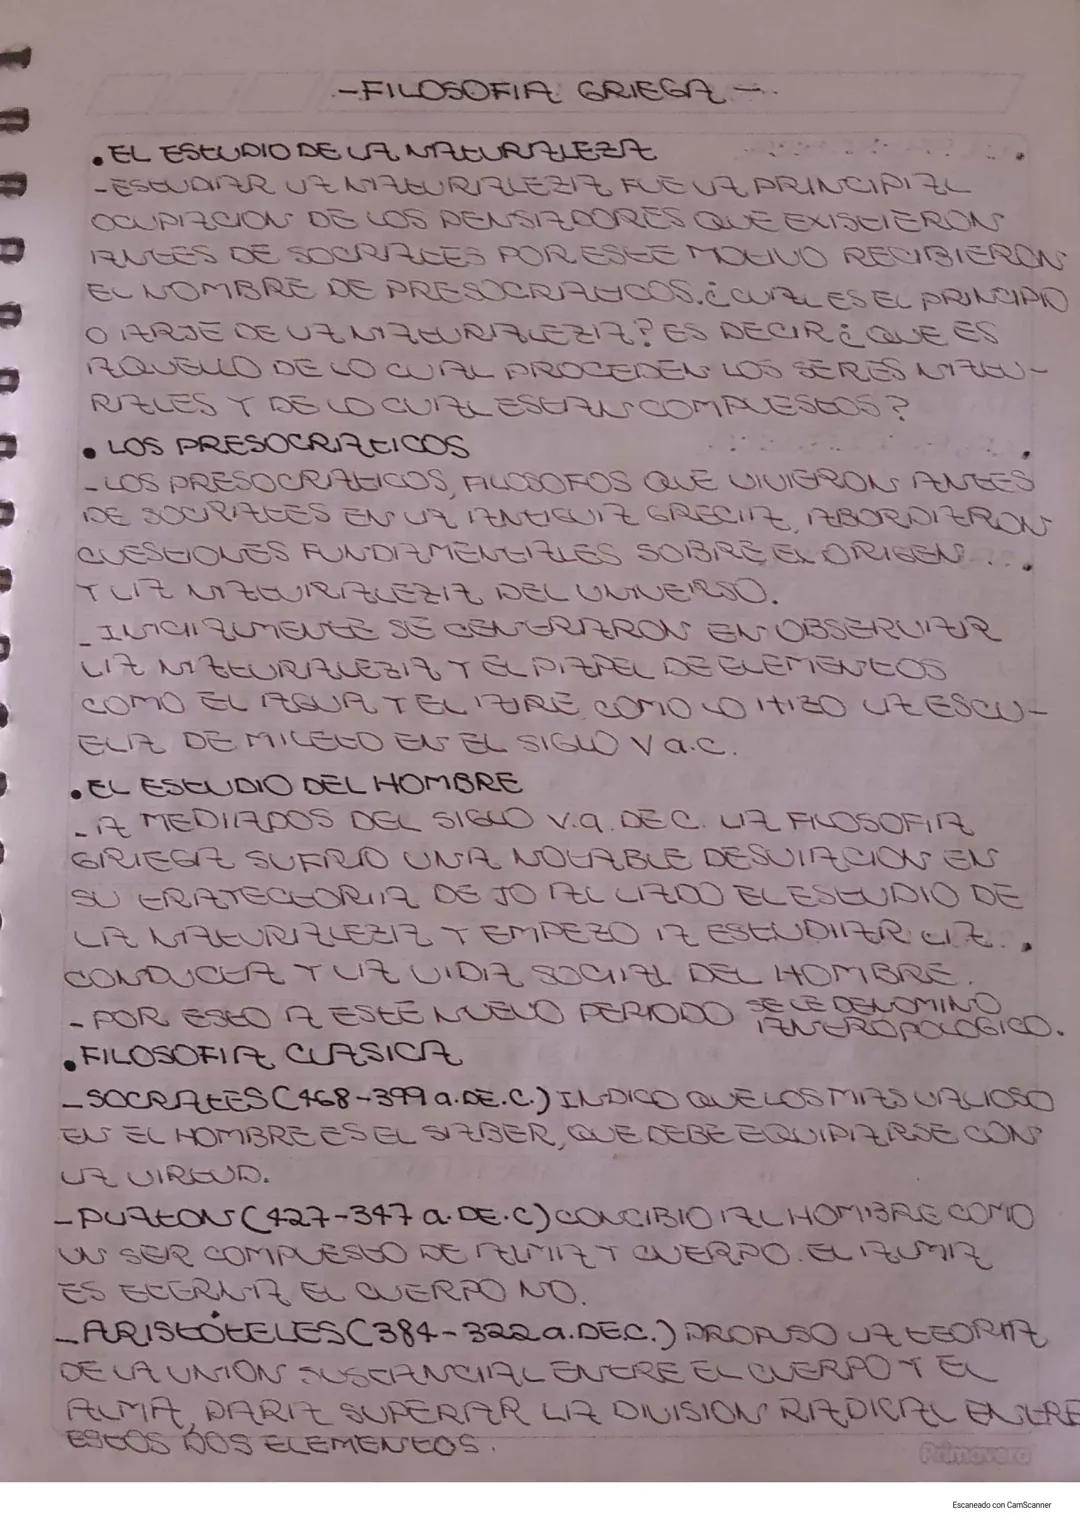 -FILOSOFIA GRIEGA-.
• EL ESTUDIO DE LA NATURALEZA
- ESTUDIAR LA NATURALEZA FUE LA PRINCIPAL
OCUPACION DE LOS PENSADORES QUE EXISTIERON
ANTES DE SOCRATES POR ESTE MOTIVO RECIBIERON
EL NOMBRE DE PRESOCRATICOS. ¿CUAL ES EL PRINCIPIO
O ARJE DE LA NATURALEZA? ES DECIR ¿QUE ES
AQUELLO DE LO CUAL PROCEDEN LOS SERES NATU-
RALES Y DE LO CUAL ESTAN COMPUESTOS?
• LOS PRESOCRATICOS
- LOS PRESOCRATICOS, FILOSOFOS QUE VIVIERON ANTES
DE SOCRATES EN LA ANTIGUA GRECIA, ABORDARON
CUESTIONES FUNDAMENTALES SOBRE EL ORIGEN
Y LA NATURALEZA DEL UNIVERSO.
- INICIALMENTE SE CENTRARON EN OBSERVAR
LA NATURALEZA Y EL PAPEL DE ELEMENTOS
COMO EL AGUA Y EL AIRE, COMO LO HIZO LA ESCU-
ELA DE MILETO EN EL SIGLO V a.c.
• EL ESTUDIO DEL HOMBRE
- A MEDIADOS DEL SIGLO V.a. DE C. LA FILOSOFIA
GRIEGA SUFRIO UNA NOTABLE DESVIACION EN
SU TRAYECTORIA DEJO AL LADO EL ESTUDIO DE
LA NATURALEZA Y EMPEZO A ESTUDIAR LA
CONDUCTA Y LA VIDA SOCIAL DEL HOMBRE.
- POR ESTO A ESTE NUEVO PERIODO SE LE DENOMINO
ANTROPOLOGICO.
• FILOSOFIA CLASICA
- SOCRATES (468-399 a.DE.C.) INDICO QUE LOS MAS VALIOSO
EN EL HOMBRE ES EL SABER, QUE DEBE EQUIPARSE CON
LA VIRTUD.
- PLATON (427-347 a.DE.C) CONCIBIO AL HOMBRE COMO
UN SER COMPUESTO DE ALMA Y CUERPO. EL ALMA
ES ETERNA EL CUERPO NO.
- ARISTÓTELES (384-322 a.DE.C.) PROPUSO LA TEORIA
DE LA UNION SUSTANCIAL ENTRE EL CUERPO Y EL
ALMA, PARA SUPERAR LA DIVISION RADICAL ENTRE
ESTOS DOS ELEMENTOS.
Primavera
Escaneado con CamScanner